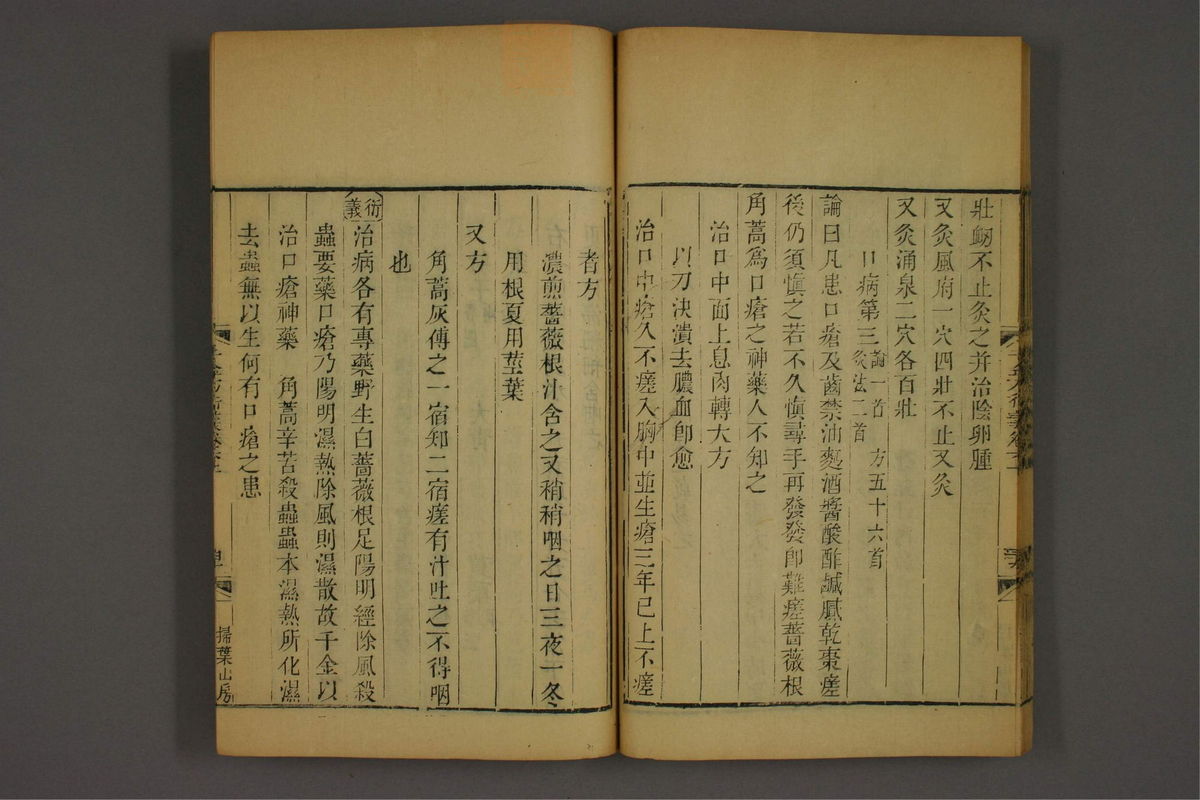 壯衂不止灸之并治陰卵腫
又灸風府一穴四壯不止又灸
又灸涌泉二穴各百壯
口病第三論一首 方五十六首 灸法二首
論曰凡患口瘡及齒禁油麪酒醬酸酢鹹膩乾棗瘥
後仍須愼之若不久愼尋手再發發卽難瘥薔薇根
角蒿爲口瘡之神藥人不知之
治口中面上息肉轉大方
以刀決潰去膿血卽愈
治口中瘡久不瘥入胸中並生瘡三年已上不瘥
者方
濃煎薔薇根汁含之又稍稍咽之日三夜一冬
用根夏用莖葉
又方
角蒿灰傅之一宿知二宿瘥有汁吐之不得咽
也
衍義治病各有專藥野生白薔薇根足陽明經除風殺
蟲要藥口瘡乃陽明濕熱除風則濕散故千金以
治口瘡神藥 角蒿辛苦殺蟲蟲本濕熱所化濕
去蟲無以生何有口瘡之患
掃葉山房